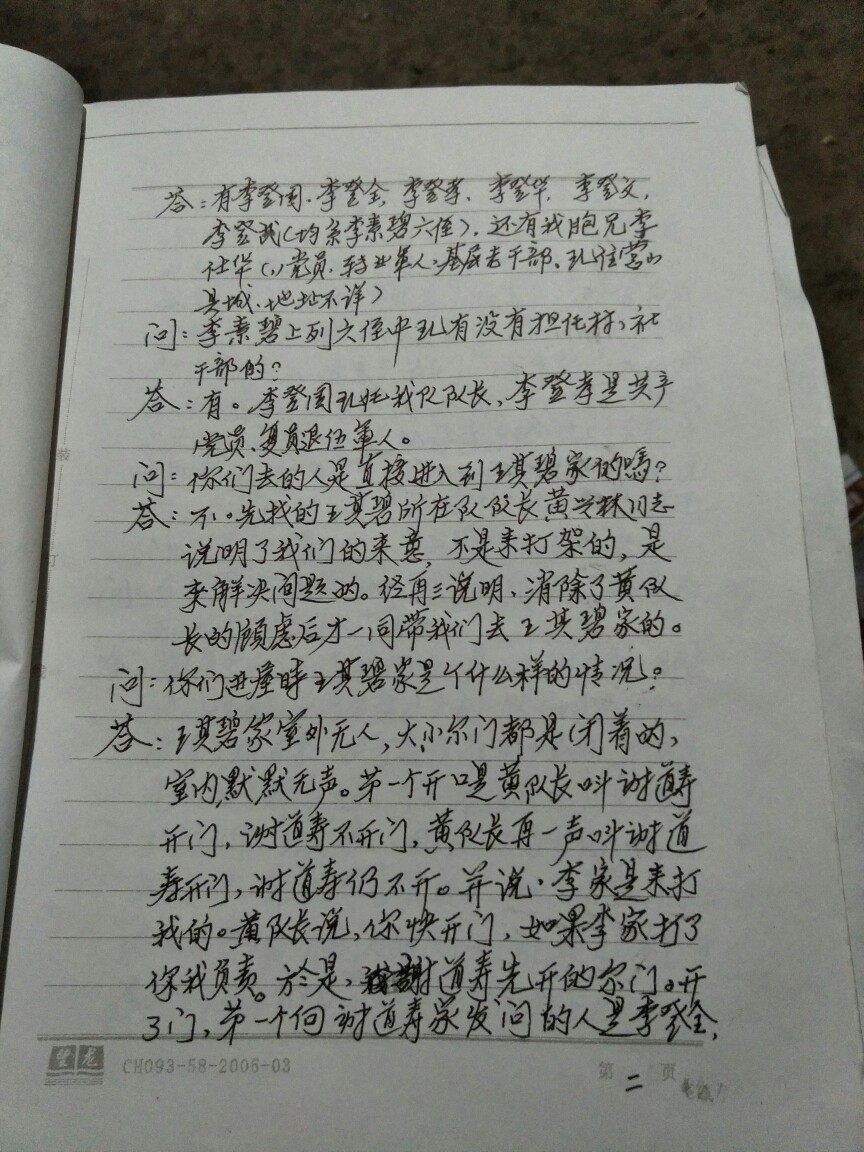 答：有李登国、李登全、李登孝、李登华、李登文、
李登武(均系李素碧六侄)，还有我胞兄李
仕华(党员、转业軍人、基层老干部、现住营山
县城、地址不详)
问：李素碧上列六侄中现有没有担任村、社
干部的？
答：有。李登国现任我队队长，李登孝是共产
党员、复员退伍軍人。
问：你们去的人是直接进入到王其碧家的嗎？
答：不。先找的王其碧所在队队长黄兴林同志
说明了我们的来意，不是来打架的，是
来解决问题的。经再三说明，消除了黄队
长的顾虑后才一同带我们去王其碧家的。
问：你们进屋時王其碧家是个什么样的情况？
答：王其碧家室外无人，大小尔门都是闭着的，
室内默默无声。第一个开口是黄队长叫谢道寿
开门，谢道寿不开门，黄队长再一声叫谢道
寿开门，谢道寿仍不开。并说，李家是来打
我的。黄队长说，你快开门，如果李家打了
你我负责。於是，谢道寿先开的尔门。开
了门，第一个向谢道寿家发问的人是李登全，
CH093-58-2005-03
第二页
装
订